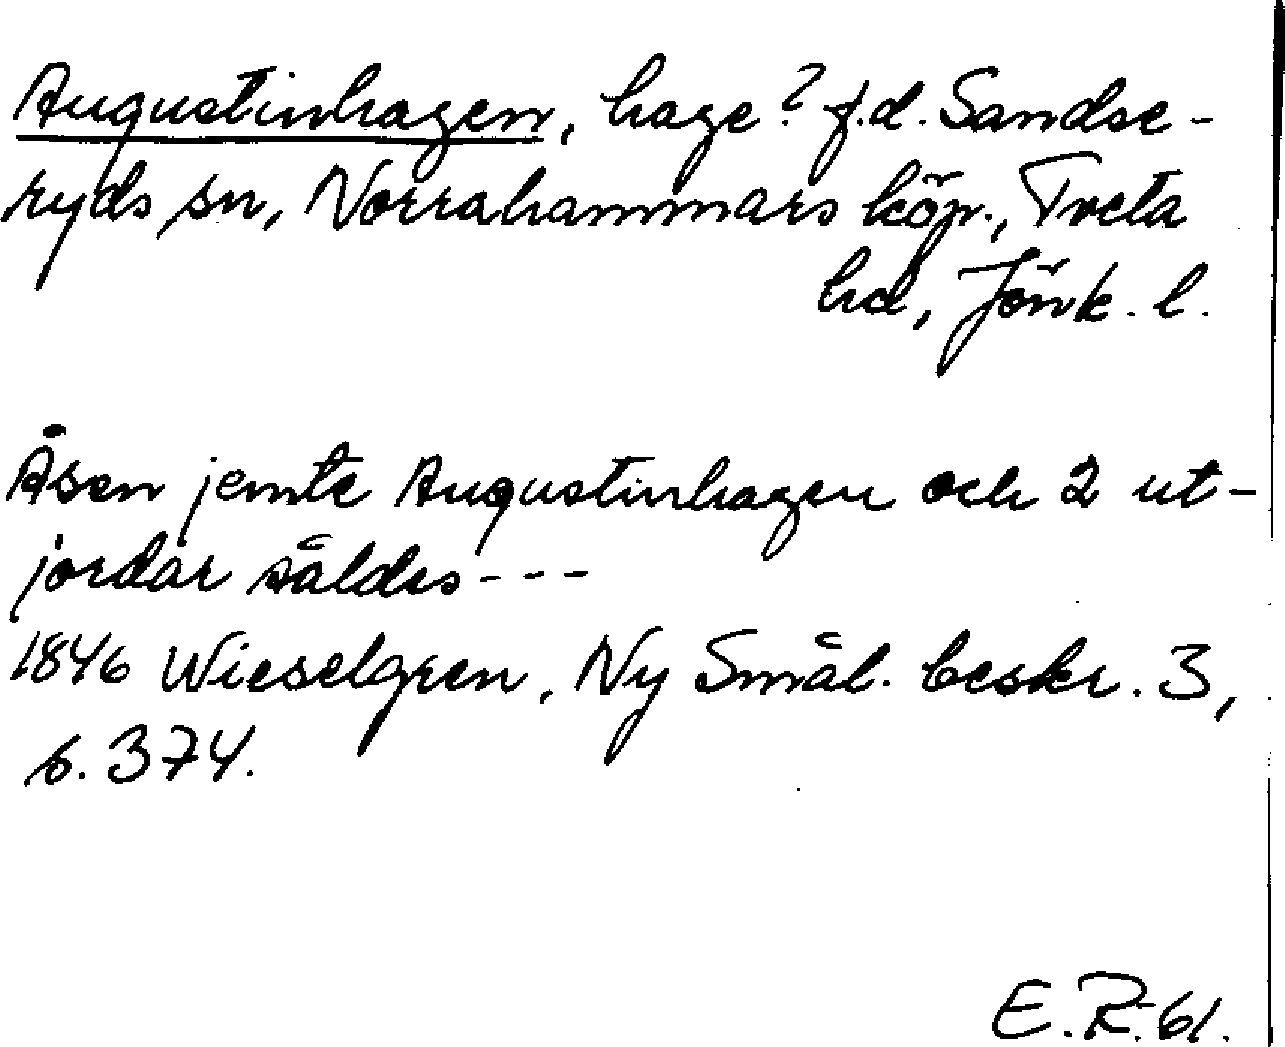 Augustinhagen, hage? f.d. Sandse-
ryds sn, Norrahammars köp., Tveta
hd, Jönk. l.
Åsen jemte Augustinhagen och 2 ut-
jordar såldes---
1846 Wieselgren, Ny Smål. beskr. 3,
s. 374.
E.R. 61.